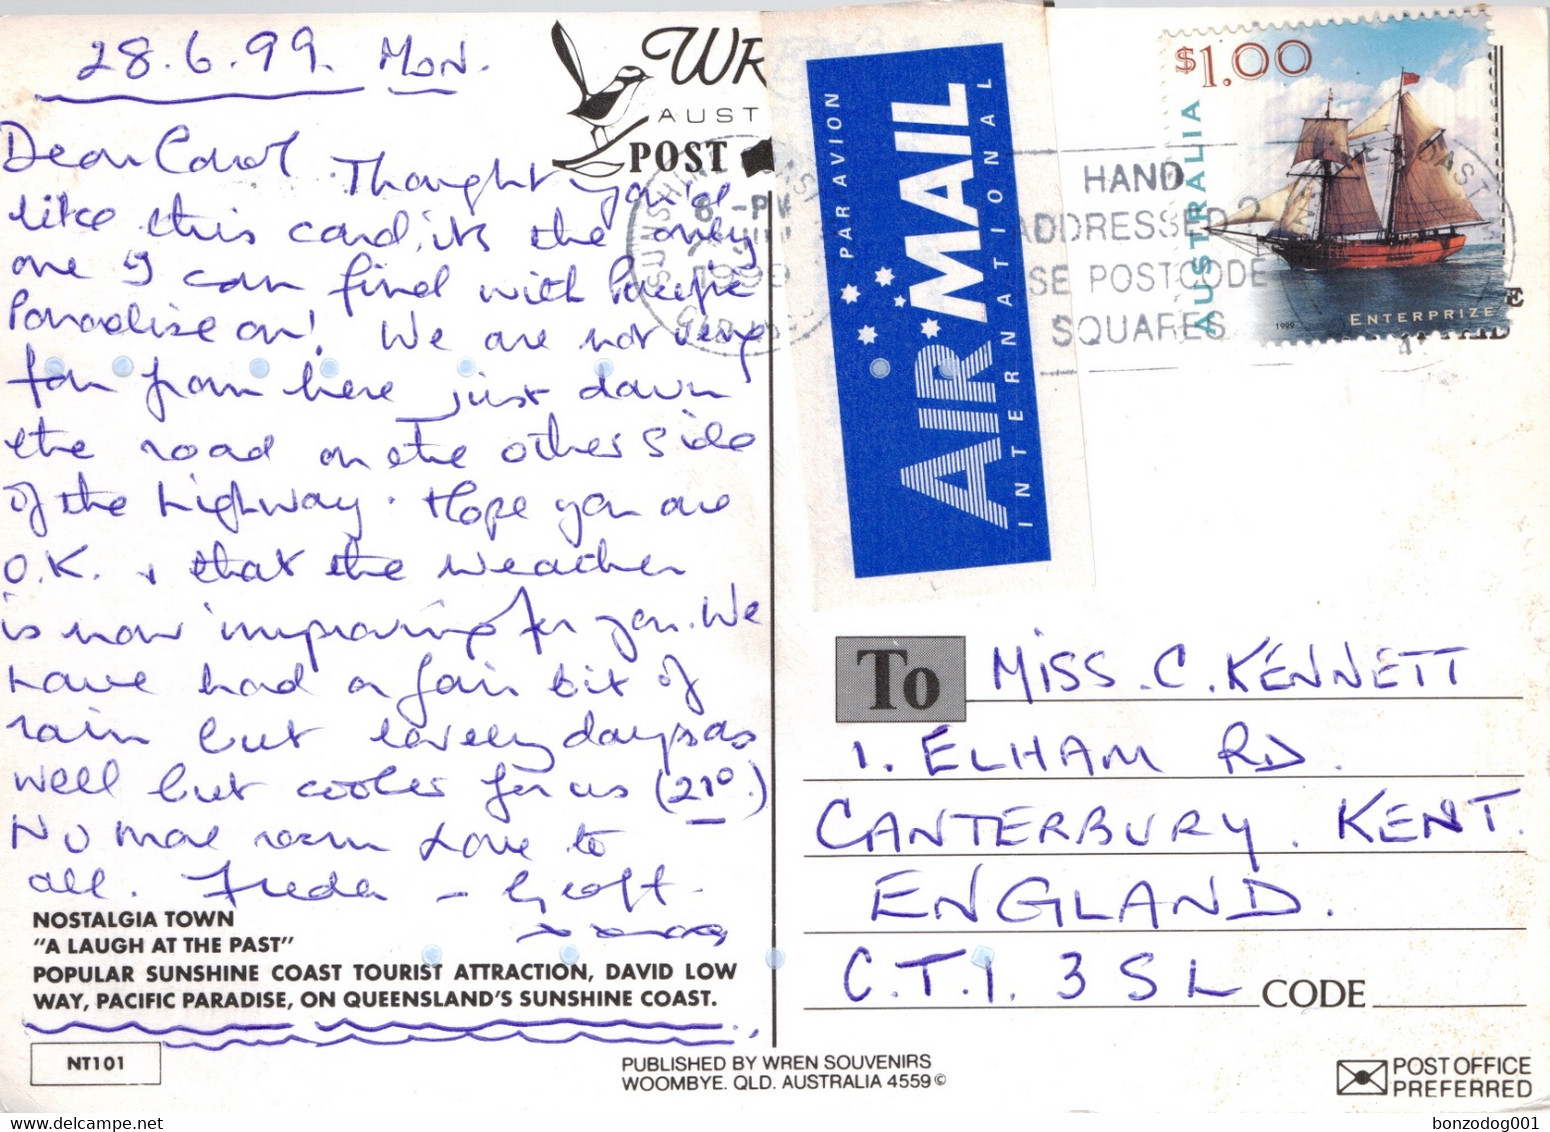 28.6.99. MON.
Dear Carol. Thought you'd
like this card, its the only
one I can find with Pacific
Paradise on! We are not very
far from here just down
the road on the other side
of the highway. Hope you are
O.K. & that the weather
is now improving for you. We
have had a fair bit of
rain but lovely days as
well but cooler for us (21°.)
No more room Love to
all. Freda - Geoff.
NOSTALGIA TOWN
"A LAUGH AT THE PAST"
POPULAR SUNSHINE COAST TOURIST ATTRACTION, DAVID LOW
WAY, PACIFIC PARADISE, ON QUEENSLAND'S SUNSHINE COAST.
NT101
WR
AUST
POST
PUBLISHED BY WREN SOUVENIRS
WOOMBYE. QLD. AUSTRALIA 4559©
PAR AVION
AIR MAIL
INTERNATIONAL
HAND
ADDRESSED?
SE POSTCODE
SQUARES
$1.00
AUSTRALIA
1999
ENTERPRIZE
To MISS. C. KENNETT
1. ELHAM RD.
CANTERBURY. KENT.
ENGLAND.
C.T.1. 3SL CODE
POST OFFICE
PREFERRED
bonzodog001